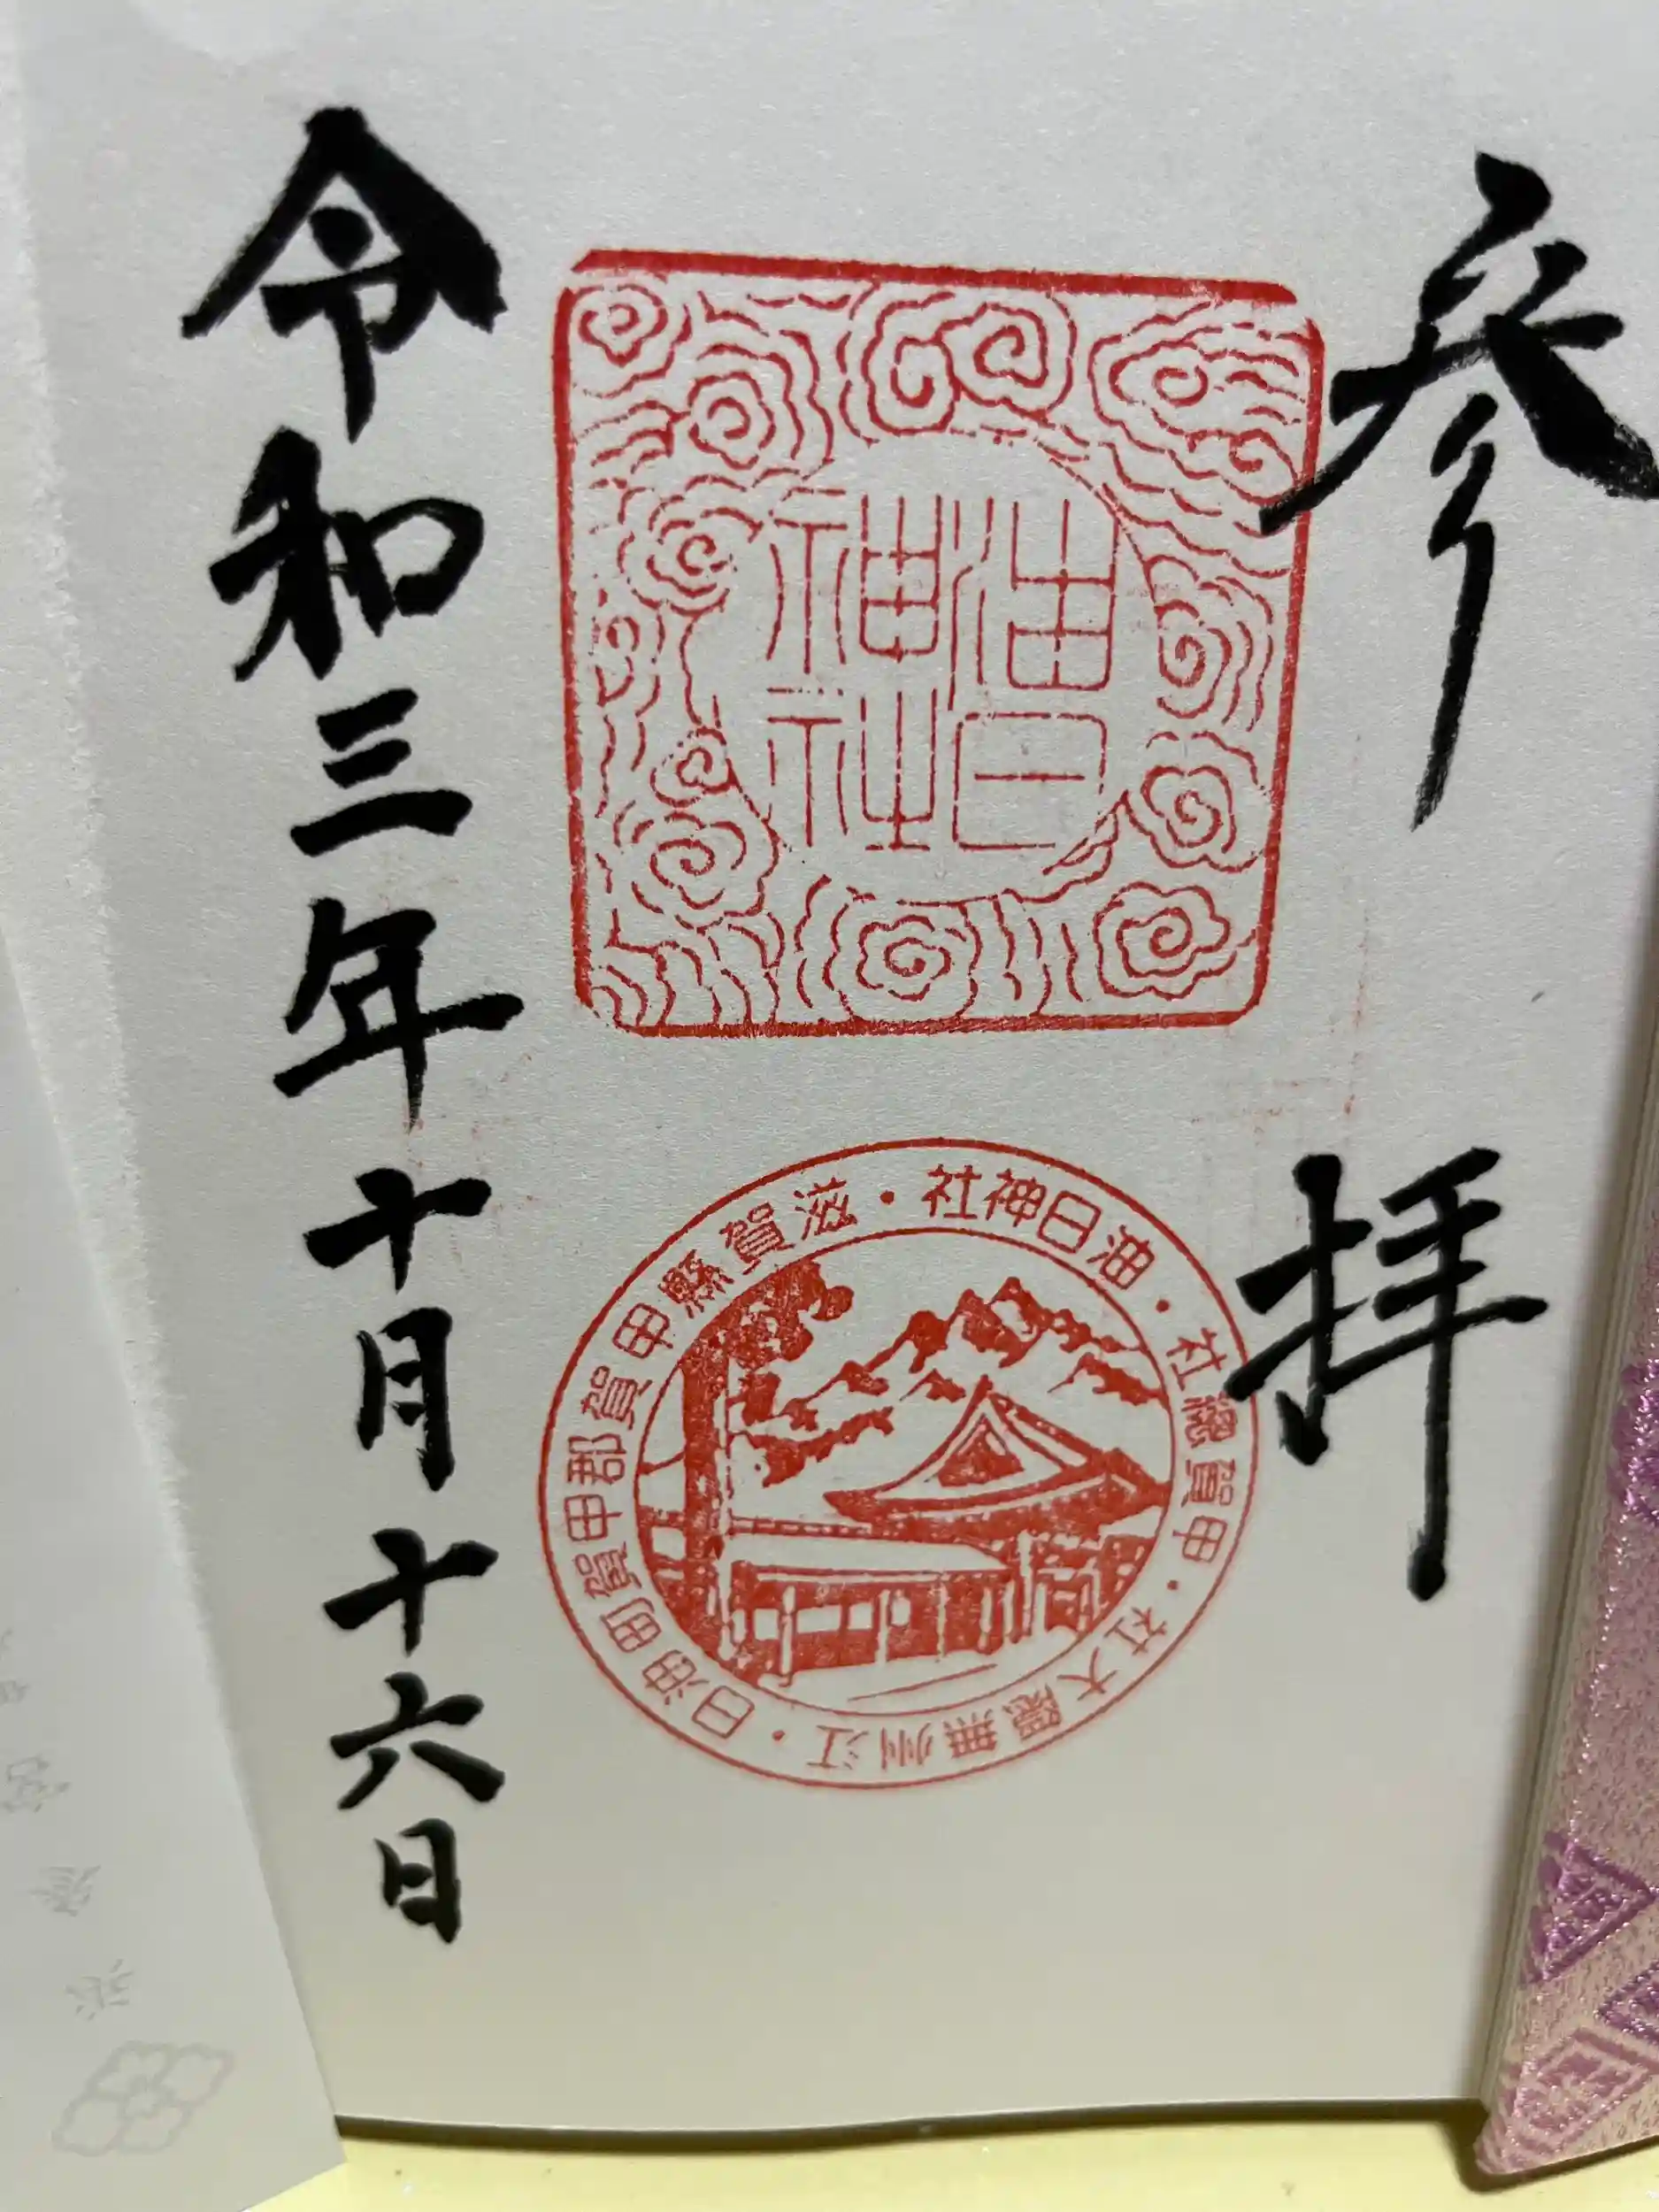 参拝
油日
神社
油日神社・滋賀縣甲賀郡甲賀町油日・江州無隈大社・甲賀總社・
令和三年十月十六日